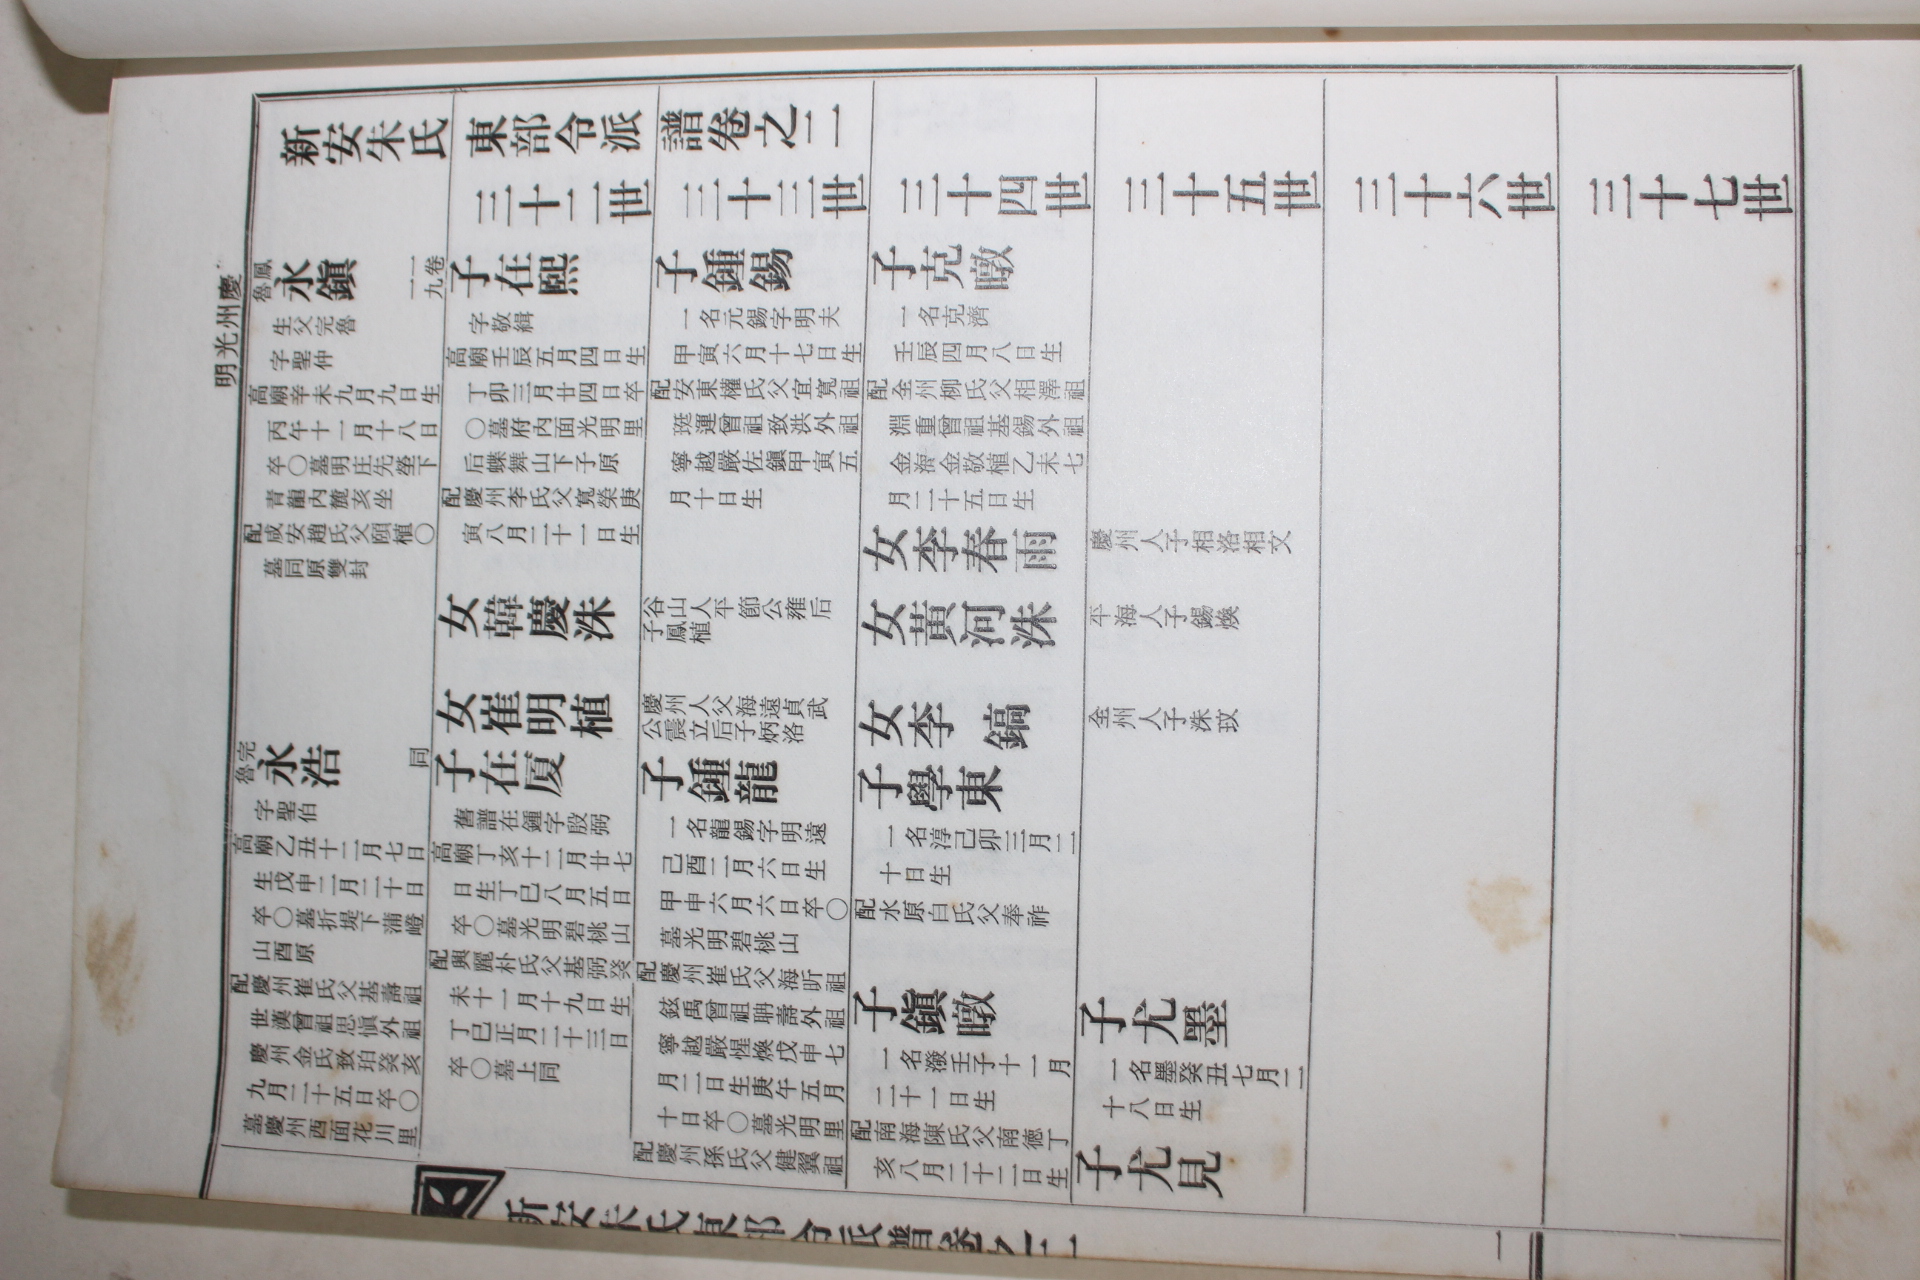 新安朱氏東部令派譜卷之二
三十二世
三十三世
三十四世
三十五世
三十六世
三十七世
慶州光明
鳳魯
永鎭
生父完魯
字聖仲
高廟辛未九月九日生
丙午十一月十八日
卒〇墓明庄先塋下
青龍內麓亥坐
配咸安趙氏父頤植〇
墓同原雙封
完魯
永浩
字聖伯
高廟乙丑十二月七日
生戊申二月二十日
卒〇墓折堤下浦嶝
山酉原
配慶州崔氏父基壽祖
世漢曾祖思愼外祖
慶州金氏致珀癸亥
九月二十五日卒〇
墓慶州西面花川里
卷一
一九
子在熙
字敬緝
高廟壬辰五月四日生
丁卯三月廿四日卒
〇墓府內面光明里
后蝶舞山下子原
配慶州李氏父寬榮庚
寅八月二十一日生
女韓慶洙
女崔明植
同
子在厦
舊譜在鍾字殷弼
高廟丁亥十二月廿七
日生丁巳八月五日
卒〇墓光明碧桃山
配興麗朴氏父基弼癸
未十一月十九日生
丁巳正月二十三日
卒〇墓上同
子鍾錫
一名元錫字明夫
甲寅六月十七日生
配安東權氏父宜寬祖
珽運曾祖致洪外祖
寧越嚴佐鎭甲寅五
月十日生
谷山人平節公雍后
子鳳植
慶州人父海遠貞武
公震立后子炳洛
子鍾龍
一名龍錫字明遠
己酉二月六日生
甲申六月六日卒〇
墓光明碧桃山
配慶州崔氏父海昕祖
鉉禹曾祖聃壽外祖
寧越嚴惺煥戊申七
月二日生庚午五月
十日卒〇墓光明里
配慶州孫氏父健翼祖
子克暾
一名克濟
壬辰四月八日生
配全州柳氏父相澤祖
淵重曾祖基錫外祖
金海金敬植乙未七
月二十五日生
女李春雨
女黃河洙
女李鎬
子學東
一名淳己卯三月二
十日生
配水原白氏父奉祚
子鎭暾
一名潑壬子十一月
二十一日生
配南海陳氏父南德丁
亥八月二十二日生
慶州人子相洛相文
平海人子錫煥
全州人子洙玟
子尤墨
一名墨癸丑七月二
十八日生
子尤見
新安朱氏東部令派譜卷之二
一